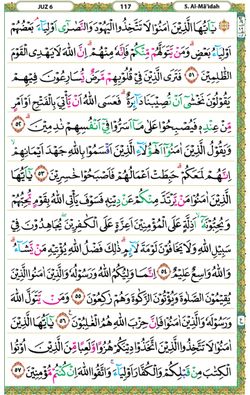 JUZ 6 117 5. Al-Mâ'idah
يٰٓاَيُّهَا الَّذِيْنَ اٰمَنُوْا لَا تَتَّخِذُوا الْيَهُوْدَ وَالنَّصٰرٰٓى اَوْلِيَآءَ ۘ بَعْضُهُمْ
اَوْلِيَآءُ بَعْضٍ ۗ وَمَنْ يَّتَوَلَّهُمْ مِّنْكُمْ فَاِنَّهٗ مِنْهُمْ ۗ اِنَّ اللّٰهَ لَا يَهْدِى الْقَوْمَ
الظّٰلِمِيْنَ ٥١ فَتَرَى الَّذِيْنَ فِيْ قُلُوْبِهِمْ مَّرَضٌ يُّسَارِعُوْنَ فِيْهِمْ
يَقُوْلُوْنَ نَخْشٰٓى اَنْ تُصِيْبَنَا دَآئِرَةٌ ۗ فَعَسَى اللّٰهُ اَنْ يَّأْتِيَ بِالْفَتْحِ اَوْ اَمْرٍ
مِّنْ عِنْدِهٖ فَيُصْبِحُوْا عَلٰى مَآ اَسَرُّوْا فِيْٓ اَنْفُسِهِمْ نٰدِمِيْنَ ٥٢
وَيَقُوْلُ الَّذِيْنَ اٰمَنُوْٓا اَهٰٓؤُلَآءِ الَّذِيْنَ اَقْسَمُوْا بِاللّٰهِ جَهْدَ اَيْمَانِهِمْ ۙ
اِنَّهُمْ لَمَعَكُمْ ۗ حَبِطَتْ اَعْمَالُهُمْ فَاَصْبَحُوْا خٰسِرِيْنَ ٥٣ يٰٓاَيُّهَا
الَّذِيْنَ اٰمَنُوْا مَنْ يَّرْتَدَّ مِنْكُمْ عَنْ دِيْنِهٖ فَسَوْفَ يَأْتِى اللّٰهُ بِقَوْمٍ يُّحِبُّهُمْ
وَيُحِبُّوْنَهٗٓ ۙ اَذِلَّةٍ عَلَى الْمُؤْمِنِيْنَ اَعِزَّةٍ عَلَى الْكٰفِرِيْنَ ۖ يُجَاهِدُوْنَ فِيْ
سَبِيْلِ اللّٰهِ وَلَا يَخَافُوْنَ لَوْمَةَ لَآئِمٍ ۗ ذٰلِكَ فَضْلُ اللّٰهِ يُؤْتِيْهِ مَنْ يَّشَآءُ ۗ
وَاللّٰهُ وَاسِعٌ عَلِيْمٌ ٥٤ اِنَّمَا وَلِيُّكُمُ اللّٰهُ وَرَسُوْلُهٗ وَالَّذِيْنَ اٰمَنُوا الَّذِيْنَ
يُقِيْمُوْنَ الصَّلٰوةَ وَيُؤْتُوْنَ الزَّكٰوةَ وَهُمْ رٰكِعُوْنَ ٥٥ وَمَنْ يَّتَوَلَّ اللّٰهَ
وَرَسُوْلَهٗ وَالَّذِيْنَ اٰمَنُوْا فَاِنَّ حِزْبَ اللّٰهِ هُمُ الْغٰلِبُوْنَ ٥٦ يٰٓاَيُّهَا الَّذِيْنَ
اٰمَنُوْا لَا تَتَّخِذُوا الَّذِيْنَ اتَّخَذُوْا دِيْنَكُمْ هُزُوًا وَّلَعِبًا مِّنَ الَّذِيْنَ اُوْتُوا
الْكِتٰبَ مِنْ قَبْلِكُمْ وَالْكُفَّارَ اَوْلِيَآءَ ۚ وَاتَّقُوا اللّٰهَ اِنْ كُنْتُمْ مُّؤْمِنِيْنَ ٥٧